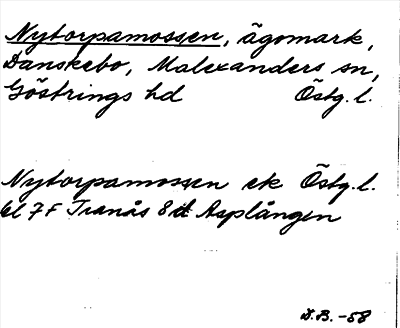 Nytorpamossen, ägomark,
Danskebo, Malexanders sn,
Göstrings hd Östg. l.
Nytorpamossen ek Östg. l.
bl 7F Tranås 8d Asplången
D.B. -58